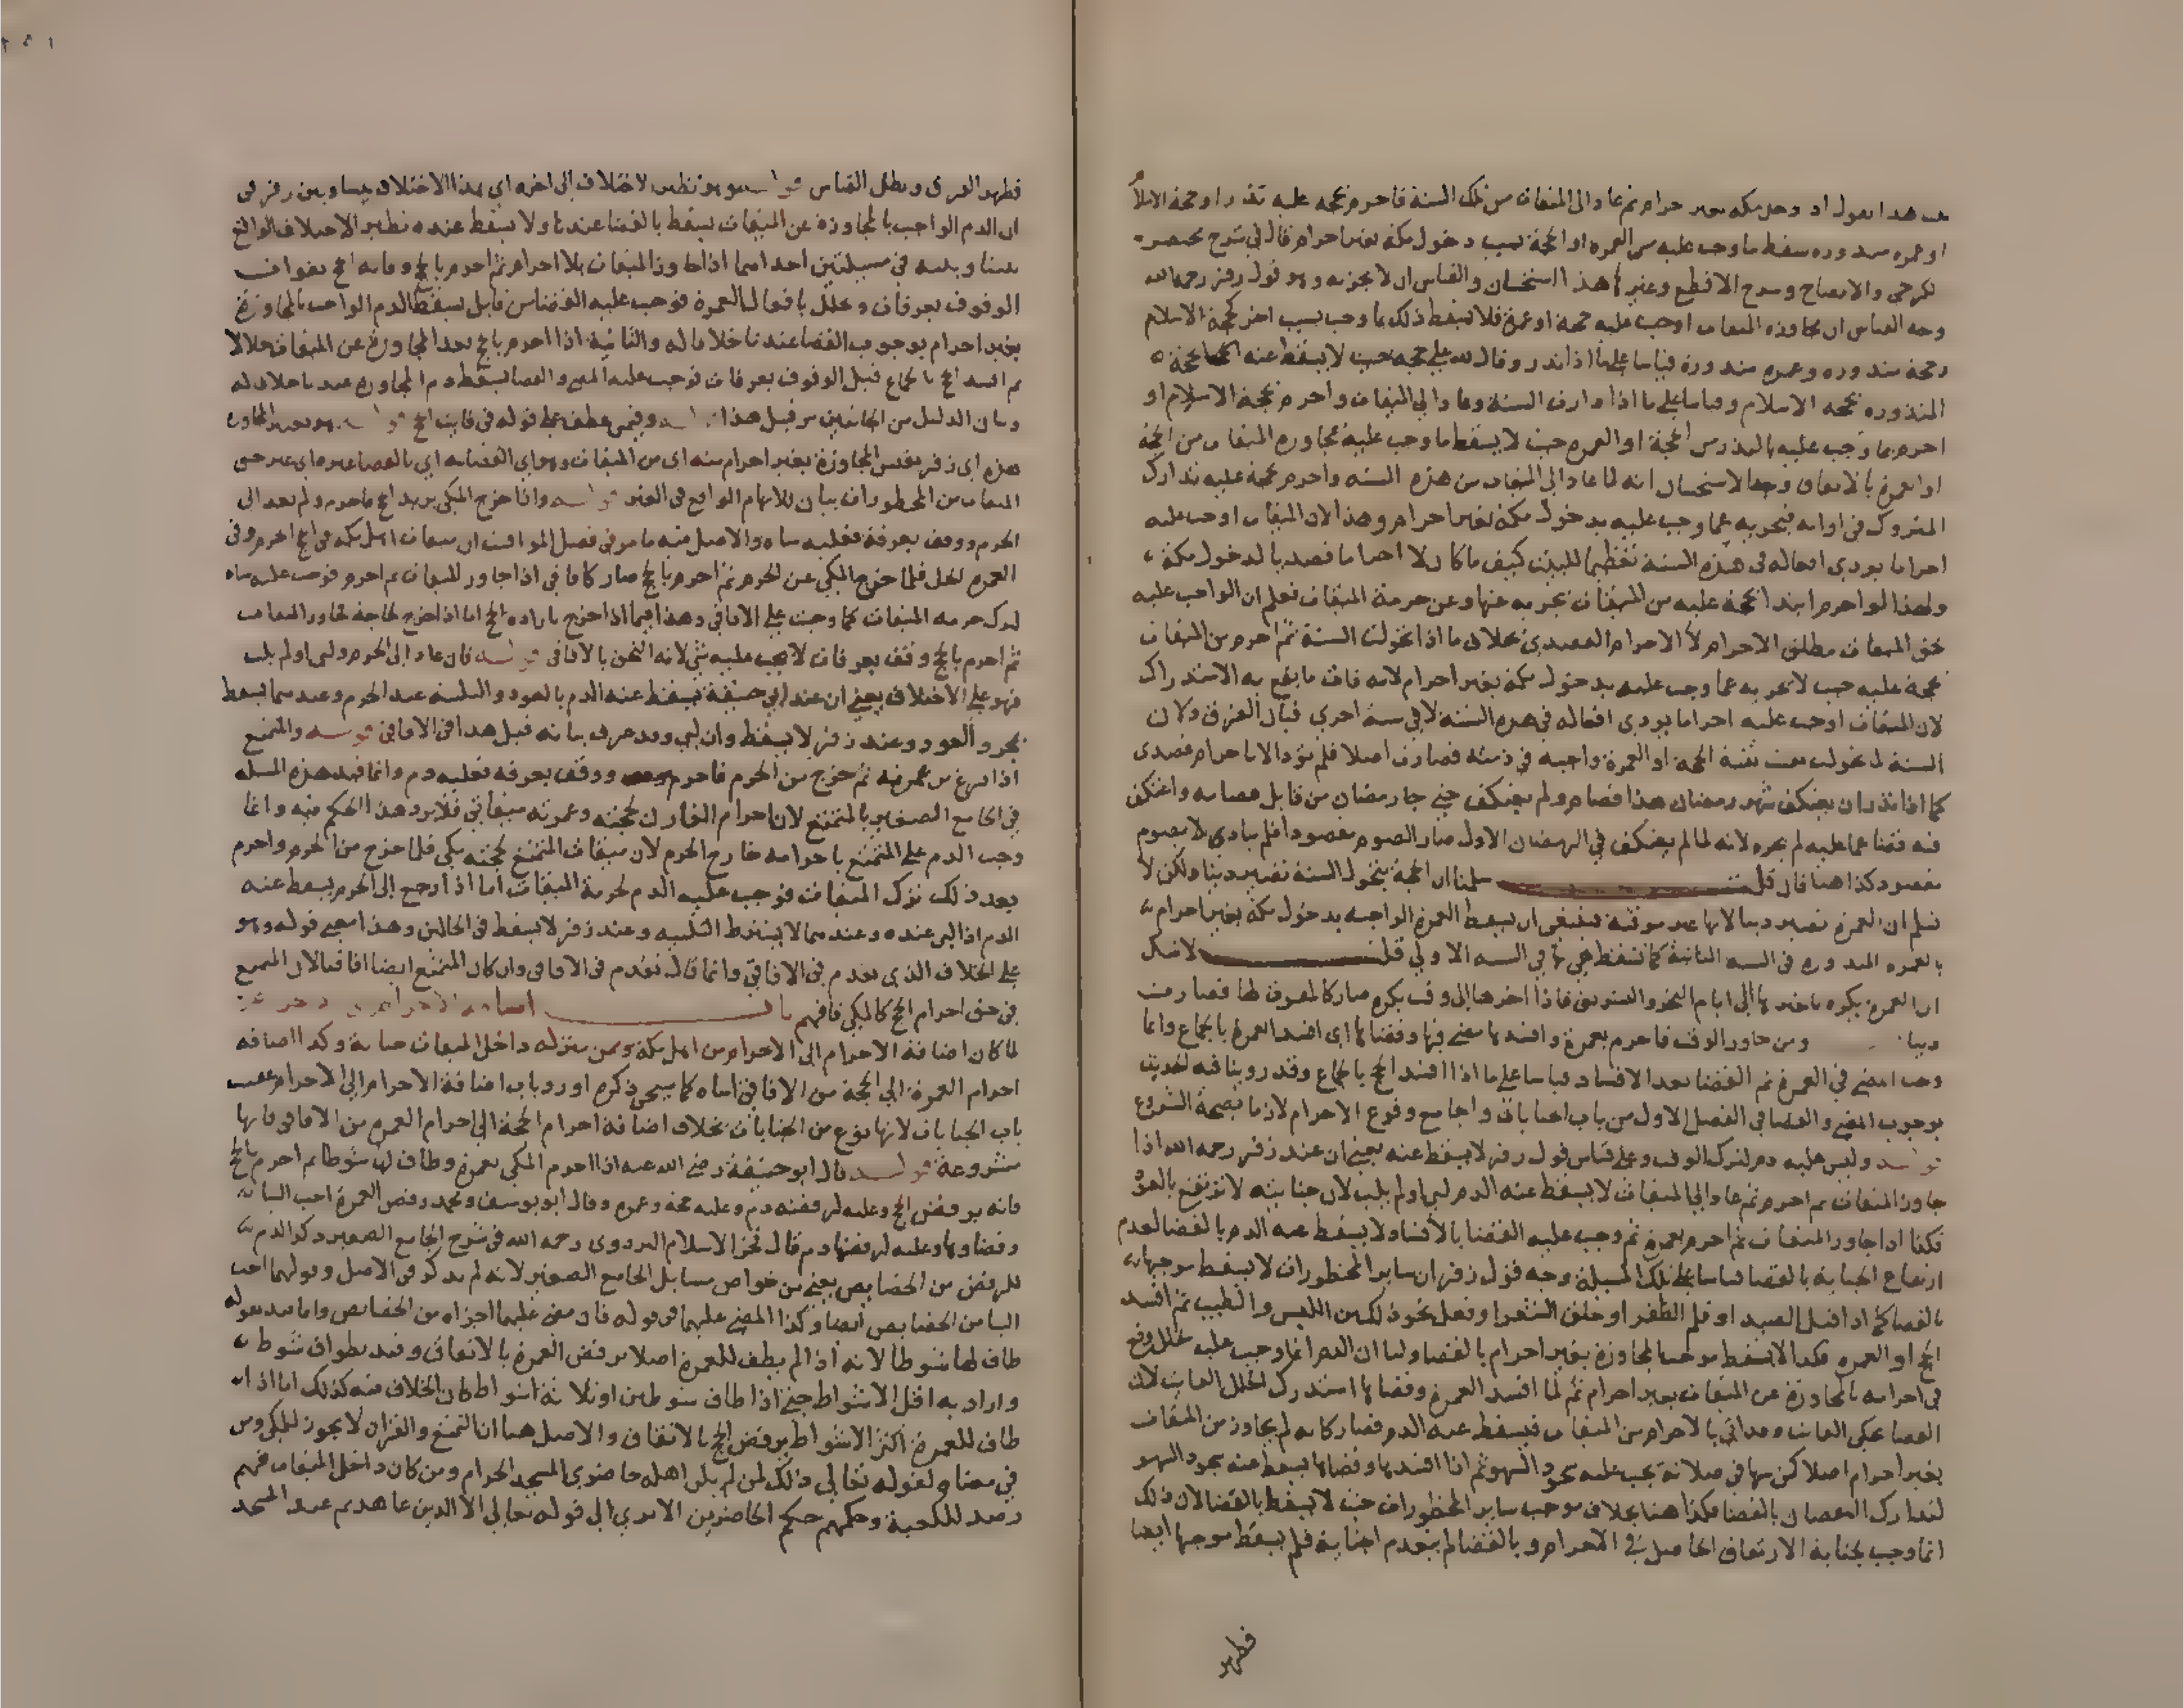 اذا دخل مكه بغير احرام ثم عاد الى الميقات من تلك السنة فاحرم بحجه عليه نذرا او حجة الاسلام
او عمره منذوره سقط ما وجب عليه من العمره او الحجة بسبب دخول مكه بغير احرام قال في شرح مختصر
الكرخي والايضاح وشرح الاقطع وغيرها هذا استحسان والقياس ان لا يجزيه وهو قول زفر رحمه الله
وجه القياس ان مجاوزه الميقات اوجب عليه حجة او عمرة فلا يسقط ذلك بما وجب بسبب اخر كحجة الاسلام
وحجة منذوره وعمره منذورة قياسا على ما اذا نذر وقال لله علي حجه حيث لا يسقط عنه الحجة
المنذوره بحجه الاسلام وقياسا على ما اذا دارت السنة وعاد الى الميقات واحرم بحجة الاسلام او
احرم بما وجب عليه بالنذر من الحجة او العمره حيث لا يسقط ما وجب عليه بمجاوره الميقات من الحجة
او العمرة بالاتفاق وجه الاستحسان انه لما عاد الى الميقات من هذه السنه واحرم بحجة عليه تدارك
المتروك في اوانه فيجزيه عما وجب عليه بدخول مكة بغير احرام وهذا لان الميقات اوجب عليه
احراما يودي افعاله في هذه السنة تعظيما للبيت كيف ما كان لا احراما قصد بالدخول مكة
ولهذا لو احرم ابتدا بحجة عليه من الميقات يجزيه عنها وعن حرمة الميقات فعلم ان الواجب عليه
لحق الميقات مطلق الاحرام لا الاحرام القصدي بخلاف ما اذا تحولت السنة ثم احرم من الميقات
بحجة عليه حيث لا يجزيه عما وجب عليه بدخول مكة بغير احرام لانه فات ما يقع به الاستدراك
لان الميقات اوجب عليه احراما يودي افعاله في هذه السنه لا في سنة اخري فبان الفرق ولان
السنة لما تحولت بقيت الحجة او العمرة واجبه في ذمته فصارت اصلا فلم تؤد الا باحرام قصدي
كما اذا نذر ان يعتكف شهر رمضان هذا فصام ولم يعتكف حتي جا رمضان من قابل فصامه واعتكف
فيه قضا عما عليه لم يجزه لانه لما لم يعتكف في الرمضان الاول صار الصوم مقصودا فلم يتادى الا بصوم
مقصود كذا هنا فان قلت سلمنا ان الحجة بتحول السنة تصير دينا ولكن لا
نسلم ان العمرة تصير دينا لانها غير موقتة فينبغي ان يسقط العمرة الواجبه بدخول مكة بغير احرام
بالعمره المنذورة في السنه الثانية كما تسقط هي بها في السنه الاولي قلت لا شك
ان العمرة يكره تاخيرها الى ايام النحر والتشريق فاذا اخرها الى وقت يكره صار كالمفوت لها فصارت
دينا ومن جاوز الوقت فاحرم بعمرة وافسدها مضي فيها وقضاها اي افسد العمرة بالجماع وانما
وجب المضي في العمرة ثم القضا بعد الافساد قياسا على ما اذا افسد الحج بالجماع وقد روينا فيه الحديث
بوجوب المضي والقضا في الفصل الاول من باب الجنايات والجامع وقوع الاحرام لازما بصحة الشروع
قوله وليس عليه دم لترك الوقت وعلى قياس قول زفر لا يسقط عنه يعني ان عند زفر رحمه الله اذا
جاوز الميقات ثم احرم ثم عاد الى الميقات لا يسقط عنه الدم لبى او لم يلب لان جنايته لا ترتفع بالعود
فكذا اذا جاوز الميقات ثم احرم بعمرة ثم وجب عليه القضا بالافساد ولا يسقط عنه الدم بالقضا لعدم
ارتفاع الجنايه بالقضا قياسا على تلك المسيلة وجه قول زفر ان ساير المحظورات لا يسقط موجبها
بالقضا كما اذا قتل الصيد او قلم الظفر او حلق الشعر او فعل نحو ذلك من اللبس والطيب ثم افسد
الحج او العمره فكذا لا يسقط موجب المجاوزة بغير احرام بالقضا ولنا ان الدم انما وجب عليه بخلل وقع
في احرامه بالمجاوزة عن الميقات بغير احرام ثم لما افسد العمرة وقضاها استدرك الخلل الفايت لان
القضا يحكي الفايت وقد اتى بالاحرام من الميقات فيسقط عنه الدم فصار كانه لم يجاوز من الميقات
بغير احرام اصلا كمن سها في صلاته يجب عليه سجود السهو ثم اذا افسدها وقضاها يسقط عنه سجود السهو
لتدارك النقصان بالقضا فكذا هنا بخلاف موجب ساير المحظورات حيث لا يسقط بالقضا لان ذلك
انما وجب بجناية الارتفاق الحاصل في الاحرام وبالقضا لم ينعدم الجناية فلم يسقط موجبها ايضا
فظهر
فظهر الفرق وبطل القياس قوله وهو نظير الاختلاف الى اخره اي هذا الاختلاف بيننا وبين زفر في
ان الدم الواجب بالمجاوزة عن الميقات يسقط بالقضا عندنا ولا يسقط عنده نظير الاختلاف الواقع
بيننا وبينه في مسيلتين احداهما اذا جاوز الميقات بلا احرام ثم احرم بالحج وفاته الحج بفوات
الوقوف بعرفات وتحلل بافعال العمرة فوجب عليه القضا من قابل يسقط الدم الواجب بالمجاوزة
بغير احرام بوجوب القضا عندنا خلافا له والثانية اذا احرم بالحج بعد المجاوزة عن الميقات حلالا
ثم افسد الحج بالجماع قبل الوقوف بعرفات فوجب عليه المضي والقضا يسقط دم المجاوزه عندنا خلافا له
وبيان الدليل من الجانبين مر قبيل هذا قوله وفيمن عطف على قوله في فايت الحج قوله هو يعتبر المجاوزه
هذه اي زفر يعتبر المجاوزة بغير احرام منه اي من الميقات وهو اي القضا به اي بالقضا غيره اي غير حق
الميقات من المحظورات بيان للابهام الواقع في الغير قوله واذا خرج المكي يريد الحج فاحرم ولم يعد الى
الحرم ووقف بعرفة فعليه شاه والاصل فيه ما مر في فصل المواقيت ان ميقات اهل مكه في الحج الحرم وفي
العمره الحل فلما خرج المكي عن الحرم ثم احرم بالحج صار كالافاقي اذا جاوز الميقات ثم احرم فوجب عليه شاه
لترك حرمه الميقات كما وجبت على الافاقي وهذا فيما اذا خرج باراده الحج اما اذا خرج لحاجة فجاوز الميقات
ثم احرم بالحج وقف بعرفات لا يجب عليه شي لانه التحق بالافاقي قوله فان عاد الى الحرم ولبى اولم يلب
فهو على الاختلاف يعني ان عند ابي حنيفة يسقط عنه الدم بالعود والتلبيه عند الحرم وعندهما يسقط
بمجرد العود وعند زفر لا يسقط وان لبى وقد عرف بيانه قبل هذا في الافاقي قوله والمتمتع
اذا فرغ من عمرته ثم خرج من الحرم فاحرم ووقف بعرفه فعليه دم وانما قيد هذه المسله
في الجامع الصغير بالمتمتع لان احرام القارن لحجته وعمرته ميقاتي فلا يرد هذا الحكم فيه وانما
وجب الدم على المتمتع باحرامه خارج الحرم لان ميقات المتمتع لحجته مكي فلما خرج من الحرم واحرم
بعد ذلك ترك الميقات فوجب عليه الدم لحرمة الميقات اما اذا رجع الى الحرم يسقط عنه
الدم اذا لبى عنده وعندهما لا يشترط التلبيه وعند زفر لا يسقط في الحالين وهذا معنى قوله وهو
على الخلاف الذي تقدم في الافاقي وانما قال تقدم في الافاقي وان كان المتمتع ايضا افاقيا لان المتمتع
في حق احرام الحج كالمكي فافهم باب اضافة الاحرام
لما كان اضافة الاحرام الى الاحرام من اهل مكة ومن منزله داخل الميقات جناية وكذا اضافه
احرام العمرة الى الحجة من الافاقي اساه كما يجيء ذكره اورد باب اضافة الاحرام الى الاحرام عقيب
باب الجنايات لانها نوع من الجنايات بخلاف اضافة احرام الحجة الى احرام العمره من الافاقي فانها
مشروعة قوله قال ابو حنيفة رضي الله عنه اذا احرم المكي بعمرة وطاف لها شوطا ثم احرم بالحج
فانه يرفض الحج وعليه لرفضه دم وعليه حجة وعمره وقال ابو يوسف ومحمد رفض العمرة احب الينا
وقضاوها وعليه لرفضها دم قال فخر الاسلام البزدوي رحمه الله في شرح الجامع الصغير وذكر الدم
للرفض من الخصايص يعني من خواص مسايل الجامع الصغير لانه لم يذكر في الاصل وقولهما احب
الينا من الخصايص ايضا وكذا المضي عليهما في قوله فان مضى عليهما اجزاه من الخصايص وانما قيد بقوله
طاف لها شوطا لانه اذا لم يطف للعمرة اصلا يرفض العمرة بالاتفاق وقيد بطواف شوط
واراد به اقل الاشواط حتي اذا طاف شوطين او ثلاثة اشواط كان الخلاف فيه كذلك اما اذا
طاف للعمرة اكثر الاشواط يرفض الحج بالاتفاق والاصل هنا ان التمتع والقران لا يجوز للمكي ومن
في معناه لقوله تعالى ذلك لمن لم يكن اهله حاضري المسجد الحرام ومن كان داخل الميقات فهم
رصد للكعبة وحكمهم حكم الحاضرين الا يري الى قوله تعالى الا الذين عاهدتم عند المسجد